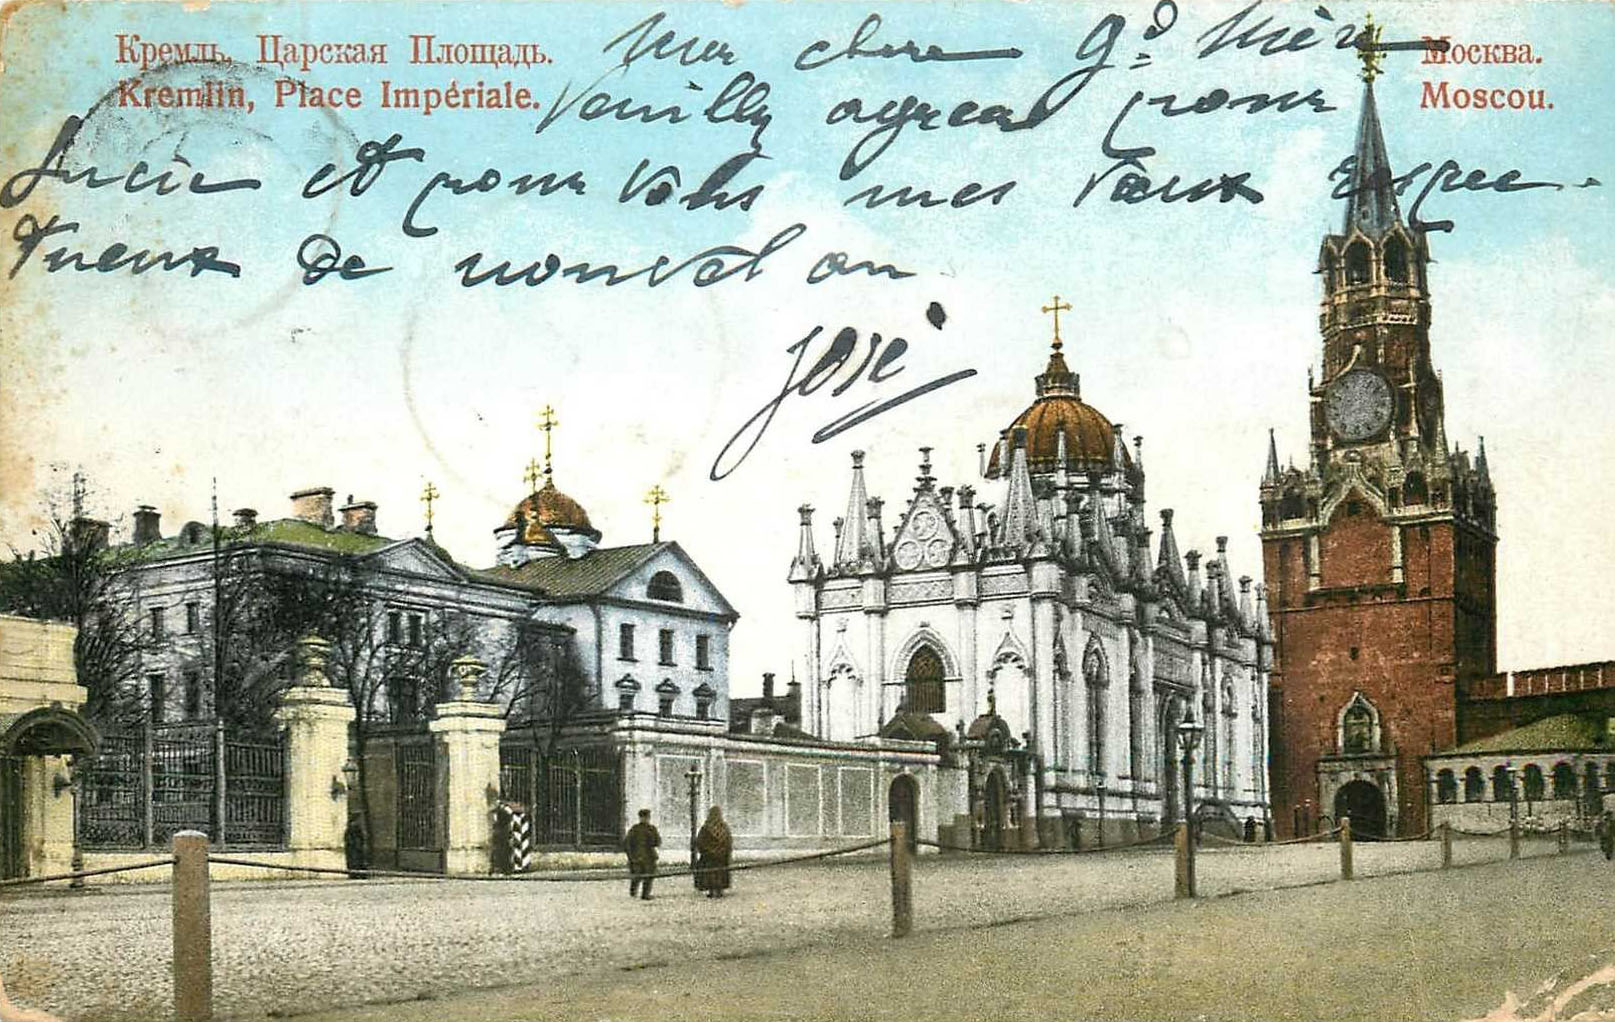 Кремль, Царская Площадь.
Kremlin, Place Impériale.
Москва.
Moscou.
Ma chère Gd Mère
Veuillez agréer pour
Lucie et pour vous mes vœux affec-
tueux de nouvel an
José